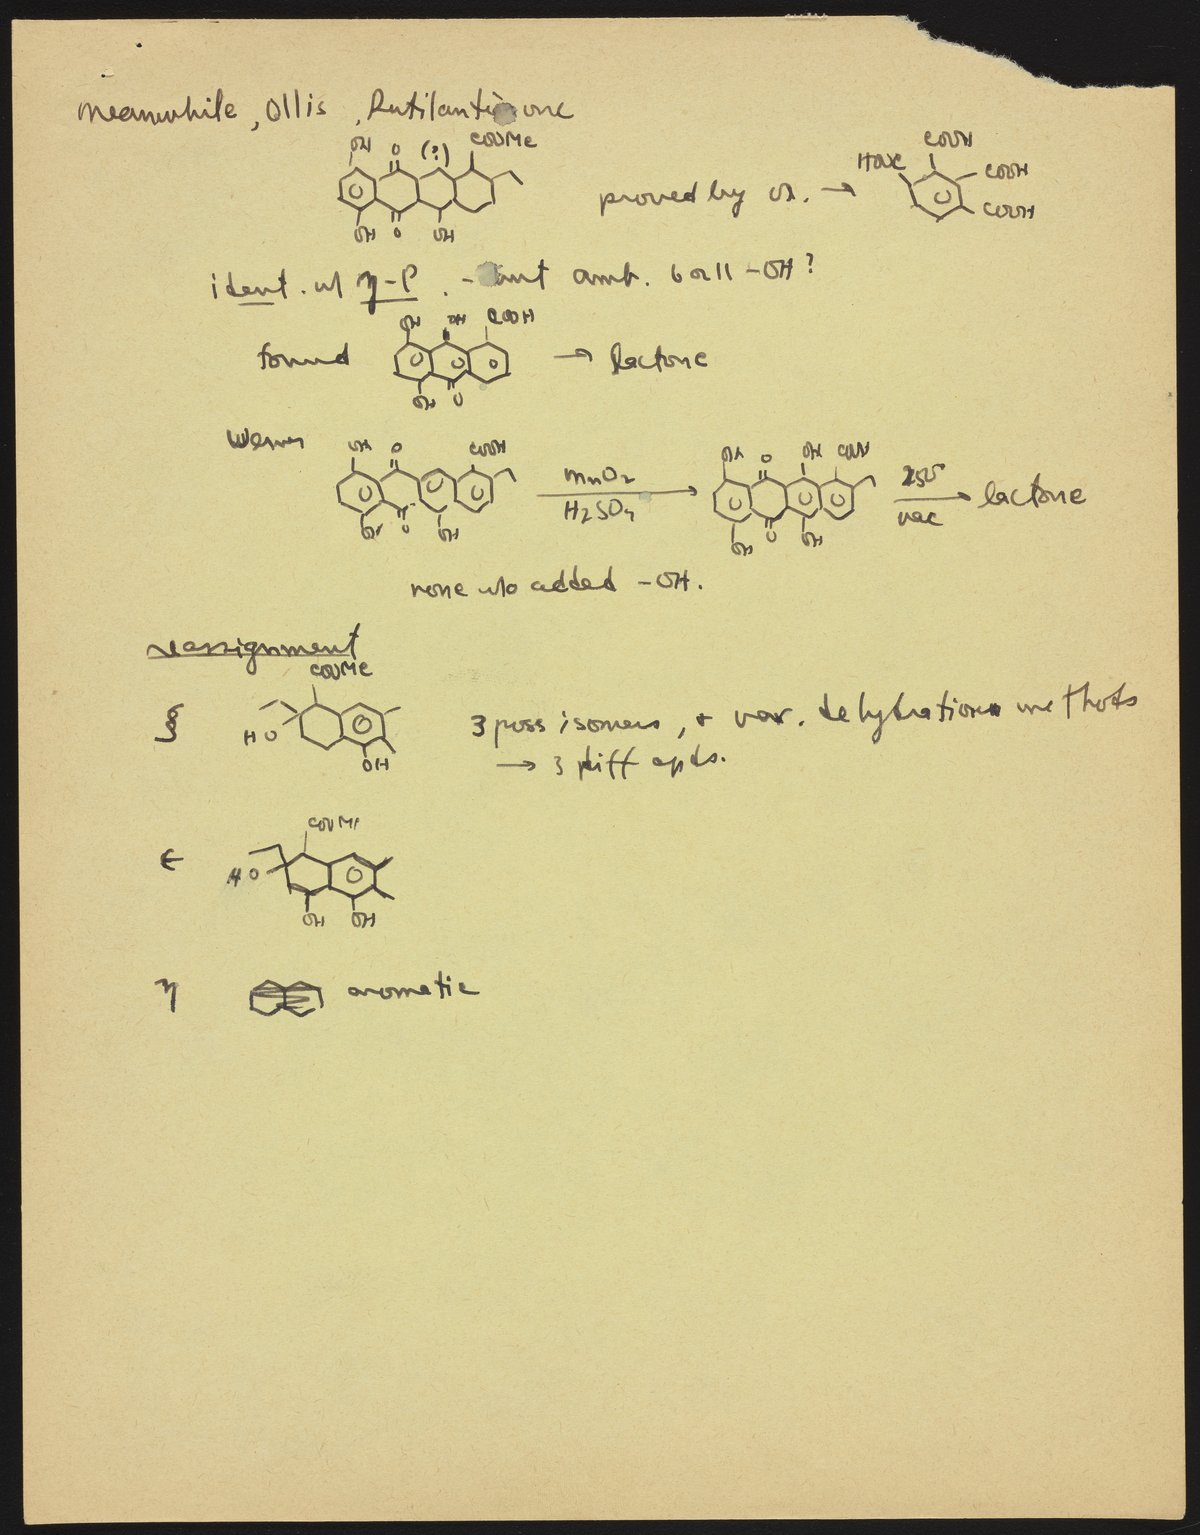 meanwhile, Ollis, Rutilantinone
OH O (?) COOMe
OH O OH
proved by ox. →
COOH
HOOC COOH
COOH
ident. w/ η-P. - but amb. 6 or 11 -OH?
OH OH COOH
found → lactone
OH O
OH O COOH
MnO2
H2SO4
OH O OH
OH O OH COOH
250
vac
→ lactone
OH O OH
none w/o added -OH.
reassignment
COOMe
ξ HO
OH
3 poss isomers, + var. dehydration methods
→ 3 diff cpds.
COOMe
ϵ HO
OH OH
η aromatic